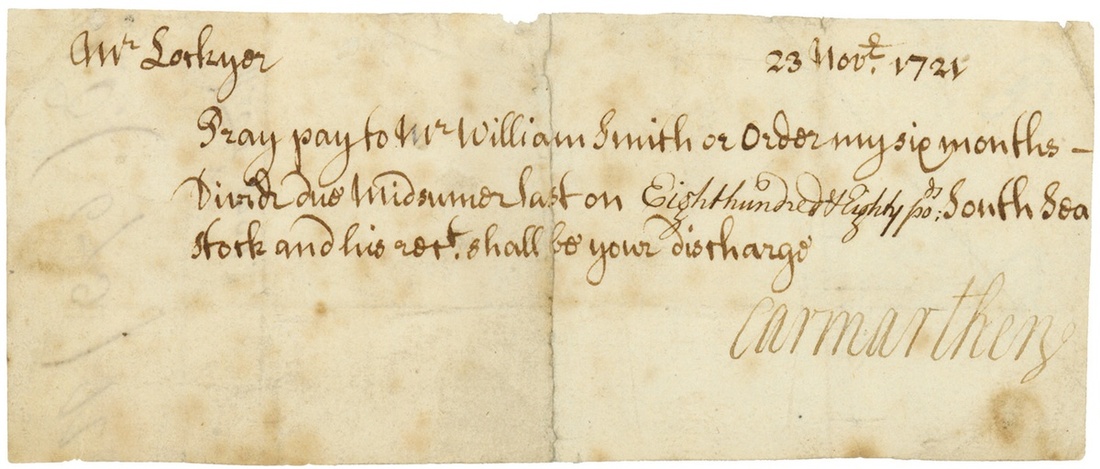 Mr Lockyer 23 Novr. 1721
Pray pay to Mr William Smith or Order my six months
Dividd due Midsumer last on Eighthundred & Eighty po: South Sea
Stock and his rect. shall be your discharge
Carmarthen